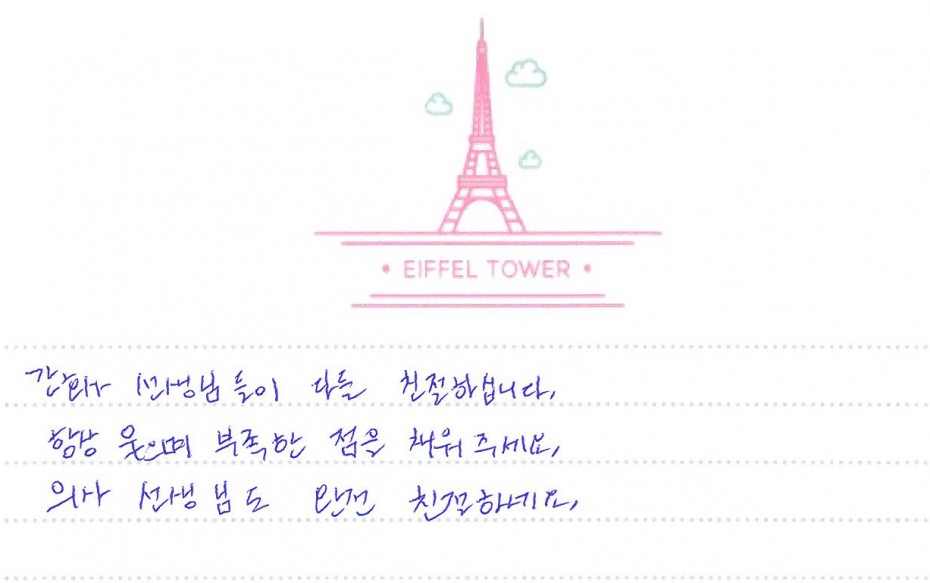 EIFFEL TOWER
간호사 선생님들이 다들 친절하십니다.
항상 웃으며 부족한 점을 채워주세요.
의사 선생님도 완전 친절하네요.